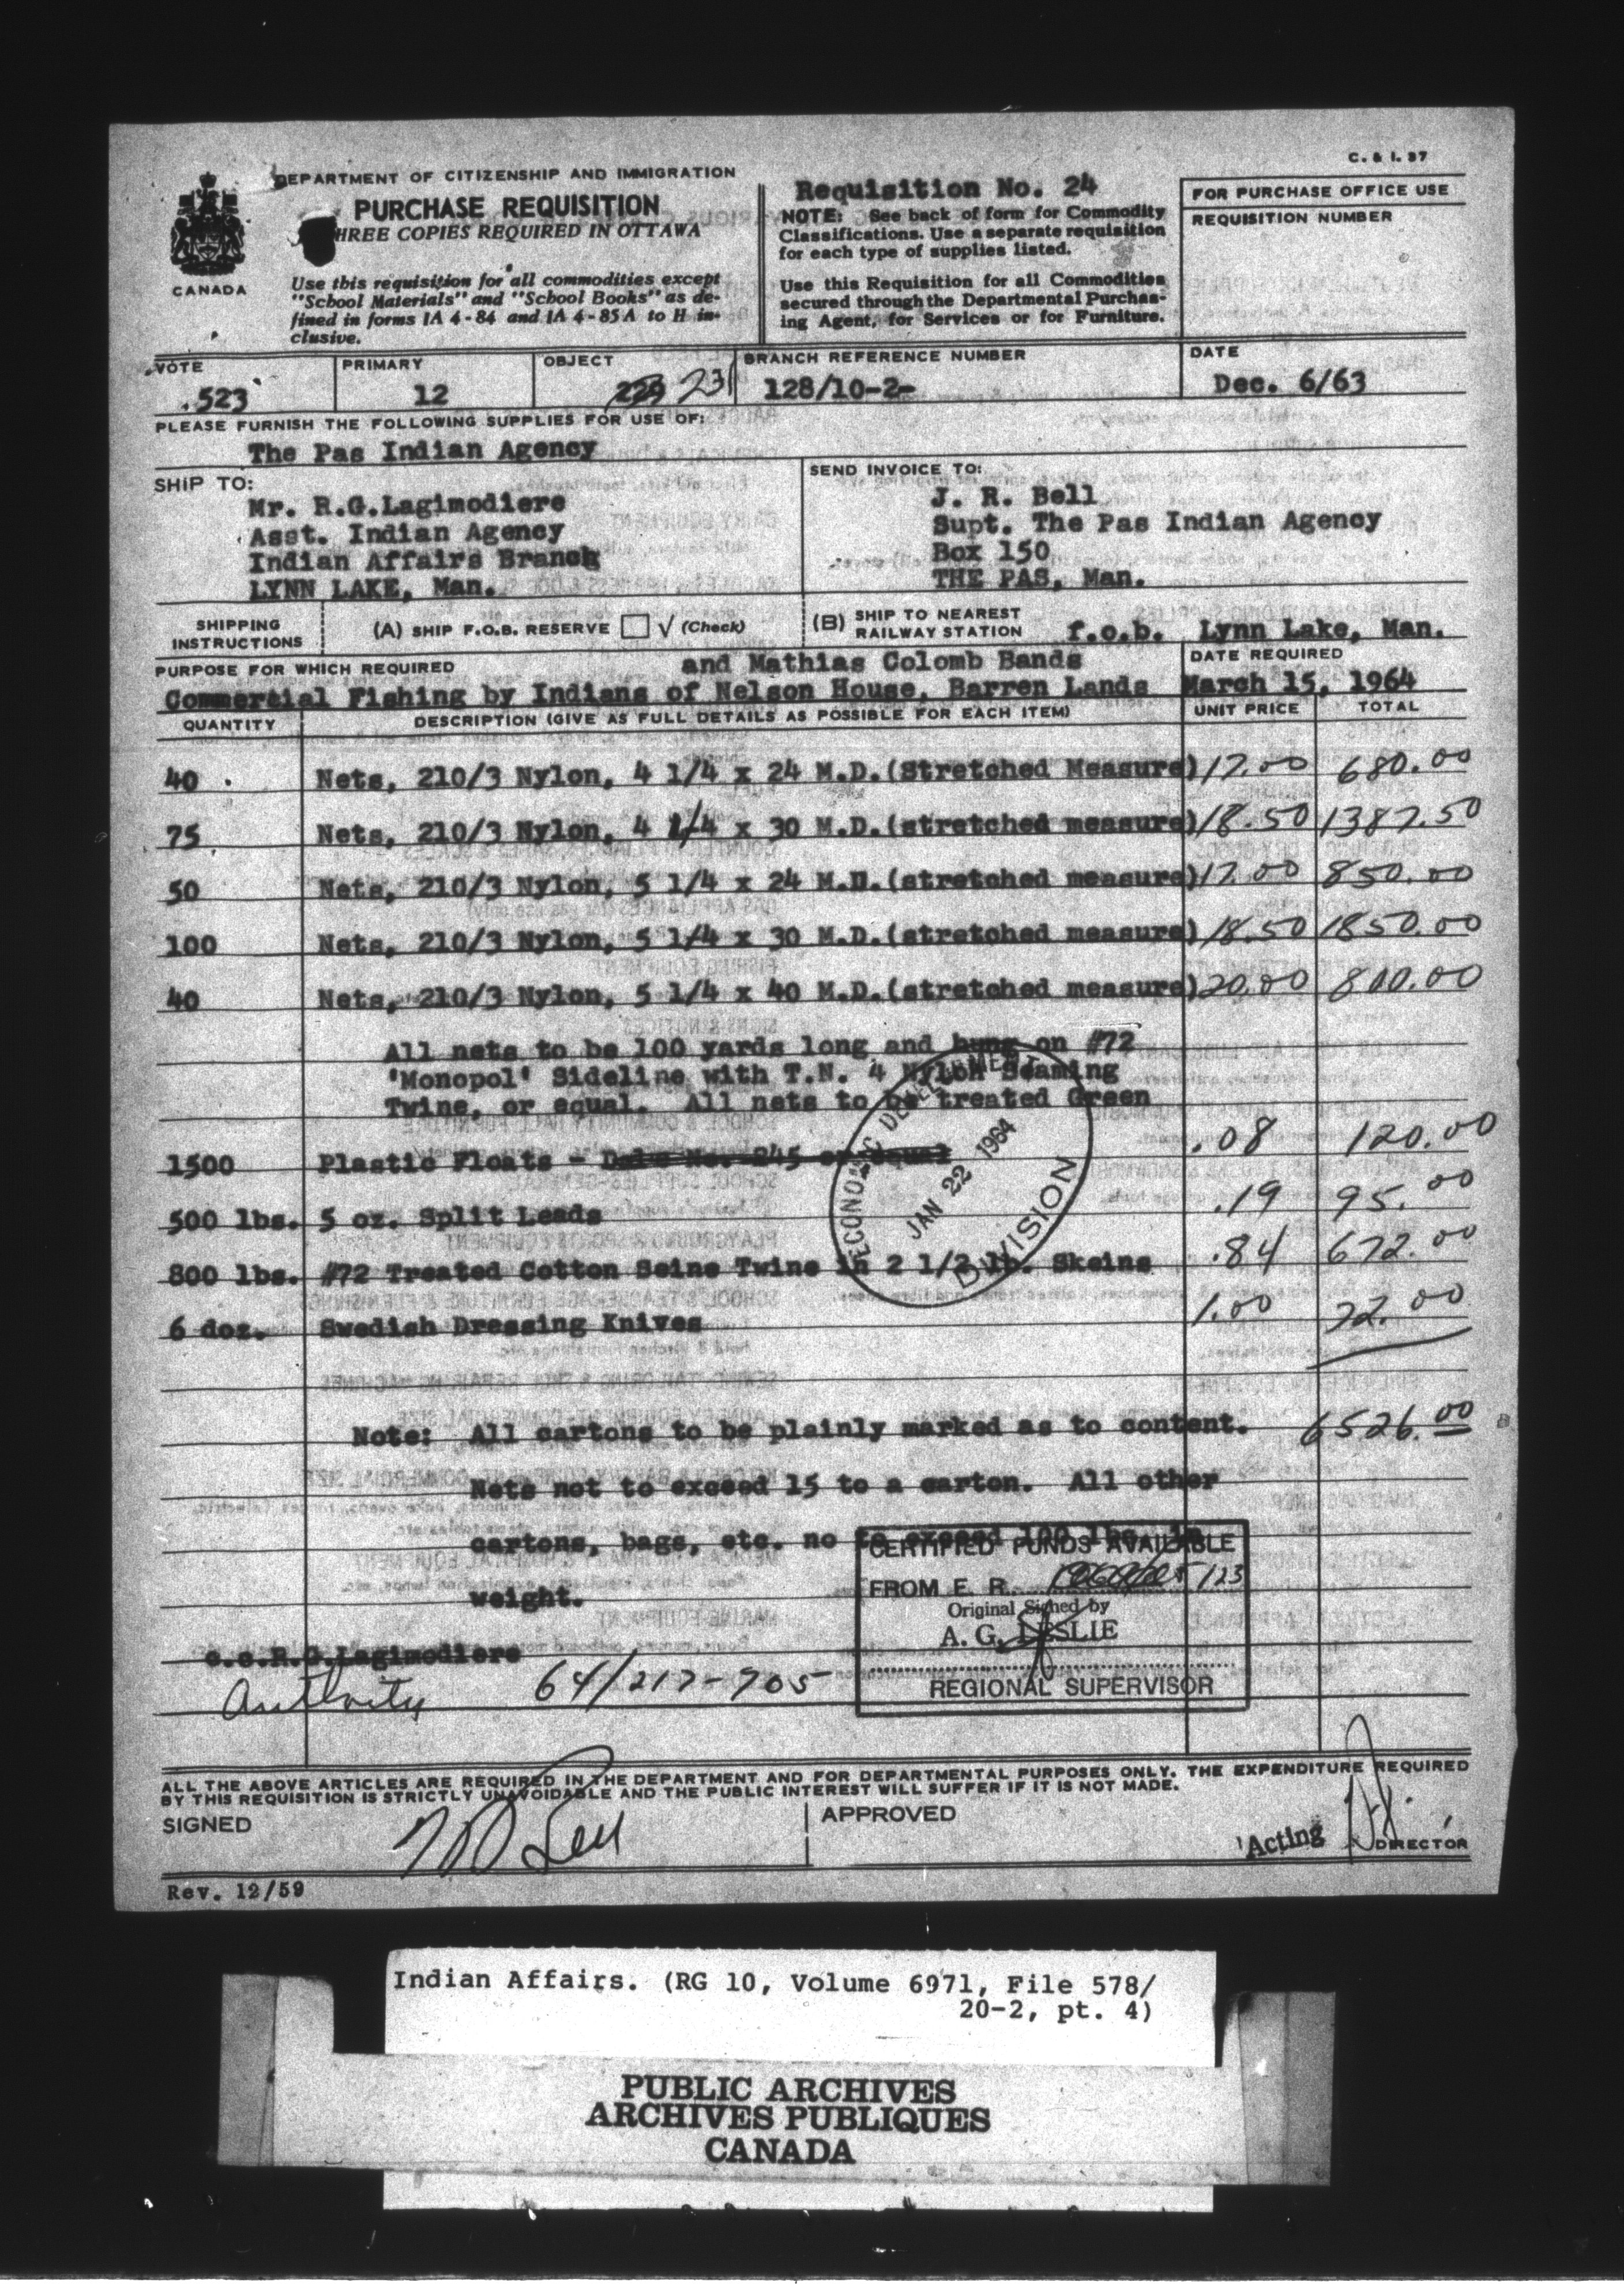 C. & I. 37
DEPARTMENT OF CITIZENSHIP AND IMMIGRATION
PURCHASE REQUISITION
HREE COPIES REQUIRED IN OTTAWA
CANADA
Use this requisition for all commodities except
"School Materials" and "School Books" as de-
fined in forms IA 4-84 and IA 4-85 A to H in-
clusive.
Requisition No. 24
NOTE: See back of form for Commodity
Classifications. Use a separate requisition
for each type of supplies listed.
Use this Requisition for all Commodities
secured through the Departmental Purchas-
ing Agent, for Services or for Furniture.
FOR PURCHASE OFFICE USE
REQUISITION NUMBER
VOTE PRIMARY OBJECT BRANCH REFERENCE NUMBER DATE
523 12 231 128/10-2- Dec. 6/63
PLEASE FURNISH THE FOLLOWING SUPPLIES FOR USE OF:
The Pas Indian Agency
SHIP TO:
Mr. R.G.Lagimodiere
Asst. Indian Agency
Indian Affairs Branch
LYNN LAKE, Man.
SEND INVOICE TO:
J. R. Bell
Supt. The Pas Indian Agency
Box 150
THE PAS, Man.
SHIPPING INSTRUCTIONS
(A) SHIP F.O.B. RESERVE √ (Check)
(B) SHIP TO NEAREST RAILWAY STATION f.o.b. Lynn Lake, Man.
PURPOSE FOR WHICH REQUIRED and Mathias Colomb Bands
Commercial Fishing by Indians of Nelson House, Barren Lands
DATE REQUIRED
March 15, 1964
QUANTITY DESCRIPTION (GIVE AS FULL DETAILS AS POSSIBLE FOR EACH ITEM) UNIT PRICE TOTAL
40 Nets, 210/3 Nylon, 4 1/4 x 24 M.D.(Stretched Measure) 17.00 680.00
75 Nets, 210/3 Nylon, 4 1/4 x 30 M.D.(stretched measure) 18.50 1387.50
50 Nets, 210/3 Nylon, 5 1/4 x 24 M.D.(stretched measure) 17.00 850.00
100 Nets, 210/3 Nylon, 5 1/4 x 30 M.D.(stretched measure) 18.50 1850.00
40 Nets, 210/3 Nylon, 5 1/4 x 40 M.D.(stretched measure) 20.00 800.00
All nets to be 100 yards long and hung on #72
'Monopol' Sideline with T.N. 4 Nylon Seaming
Twine, or equal. All nets to be treated Green
1500 Plastic Floats - Dals No. 245 or equal .08 120.00
500 lbs. 5 oz. Split Leads .19 95.00
800 lbs. #72 Treated Cotton Seine Twine in 2 1/2 lb. Skeins .84 672.00
6 doz. Swedish Dressing Knives 1.00 72.00
ECONOMIC DEVELOPMENT
JAN 22 1964
DIVISION
Note: All cartons to be plainly marked as to content. 6526.00
Nets not to exceed 15 to a carton. All other
cartons, bags, etc. no to exceed 100 lbs. in
weight.
CERTIFIED FUNDS AVAILABLE
FROM E. R. 123
Original Signed by
A. G. LESLIE
REGIONAL SUPERVISOR
c.c.R.G.Lagimodiere
Authority 64/217-705
ALL THE ABOVE ARTICLES ARE REQUIRED IN THE DEPARTMENT AND FOR DEPARTMENTAL PURPOSES ONLY. THE EXPENDITURE REQUIRED
BY THIS REQUISITION IS STRICTLY UNAVOIDABLE AND THE PUBLIC INTEREST WILL SUFFER IF IT IS NOT MADE.
SIGNED
APPROVED
Acting DIRECTOR
Rev. 12/59
Indian Affairs. (RG 10, Volume 6971, File 578/
20-2, pt. 4)
PUBLIC ARCHIVES
ARCHIVES PUBLIQUES
CANADA